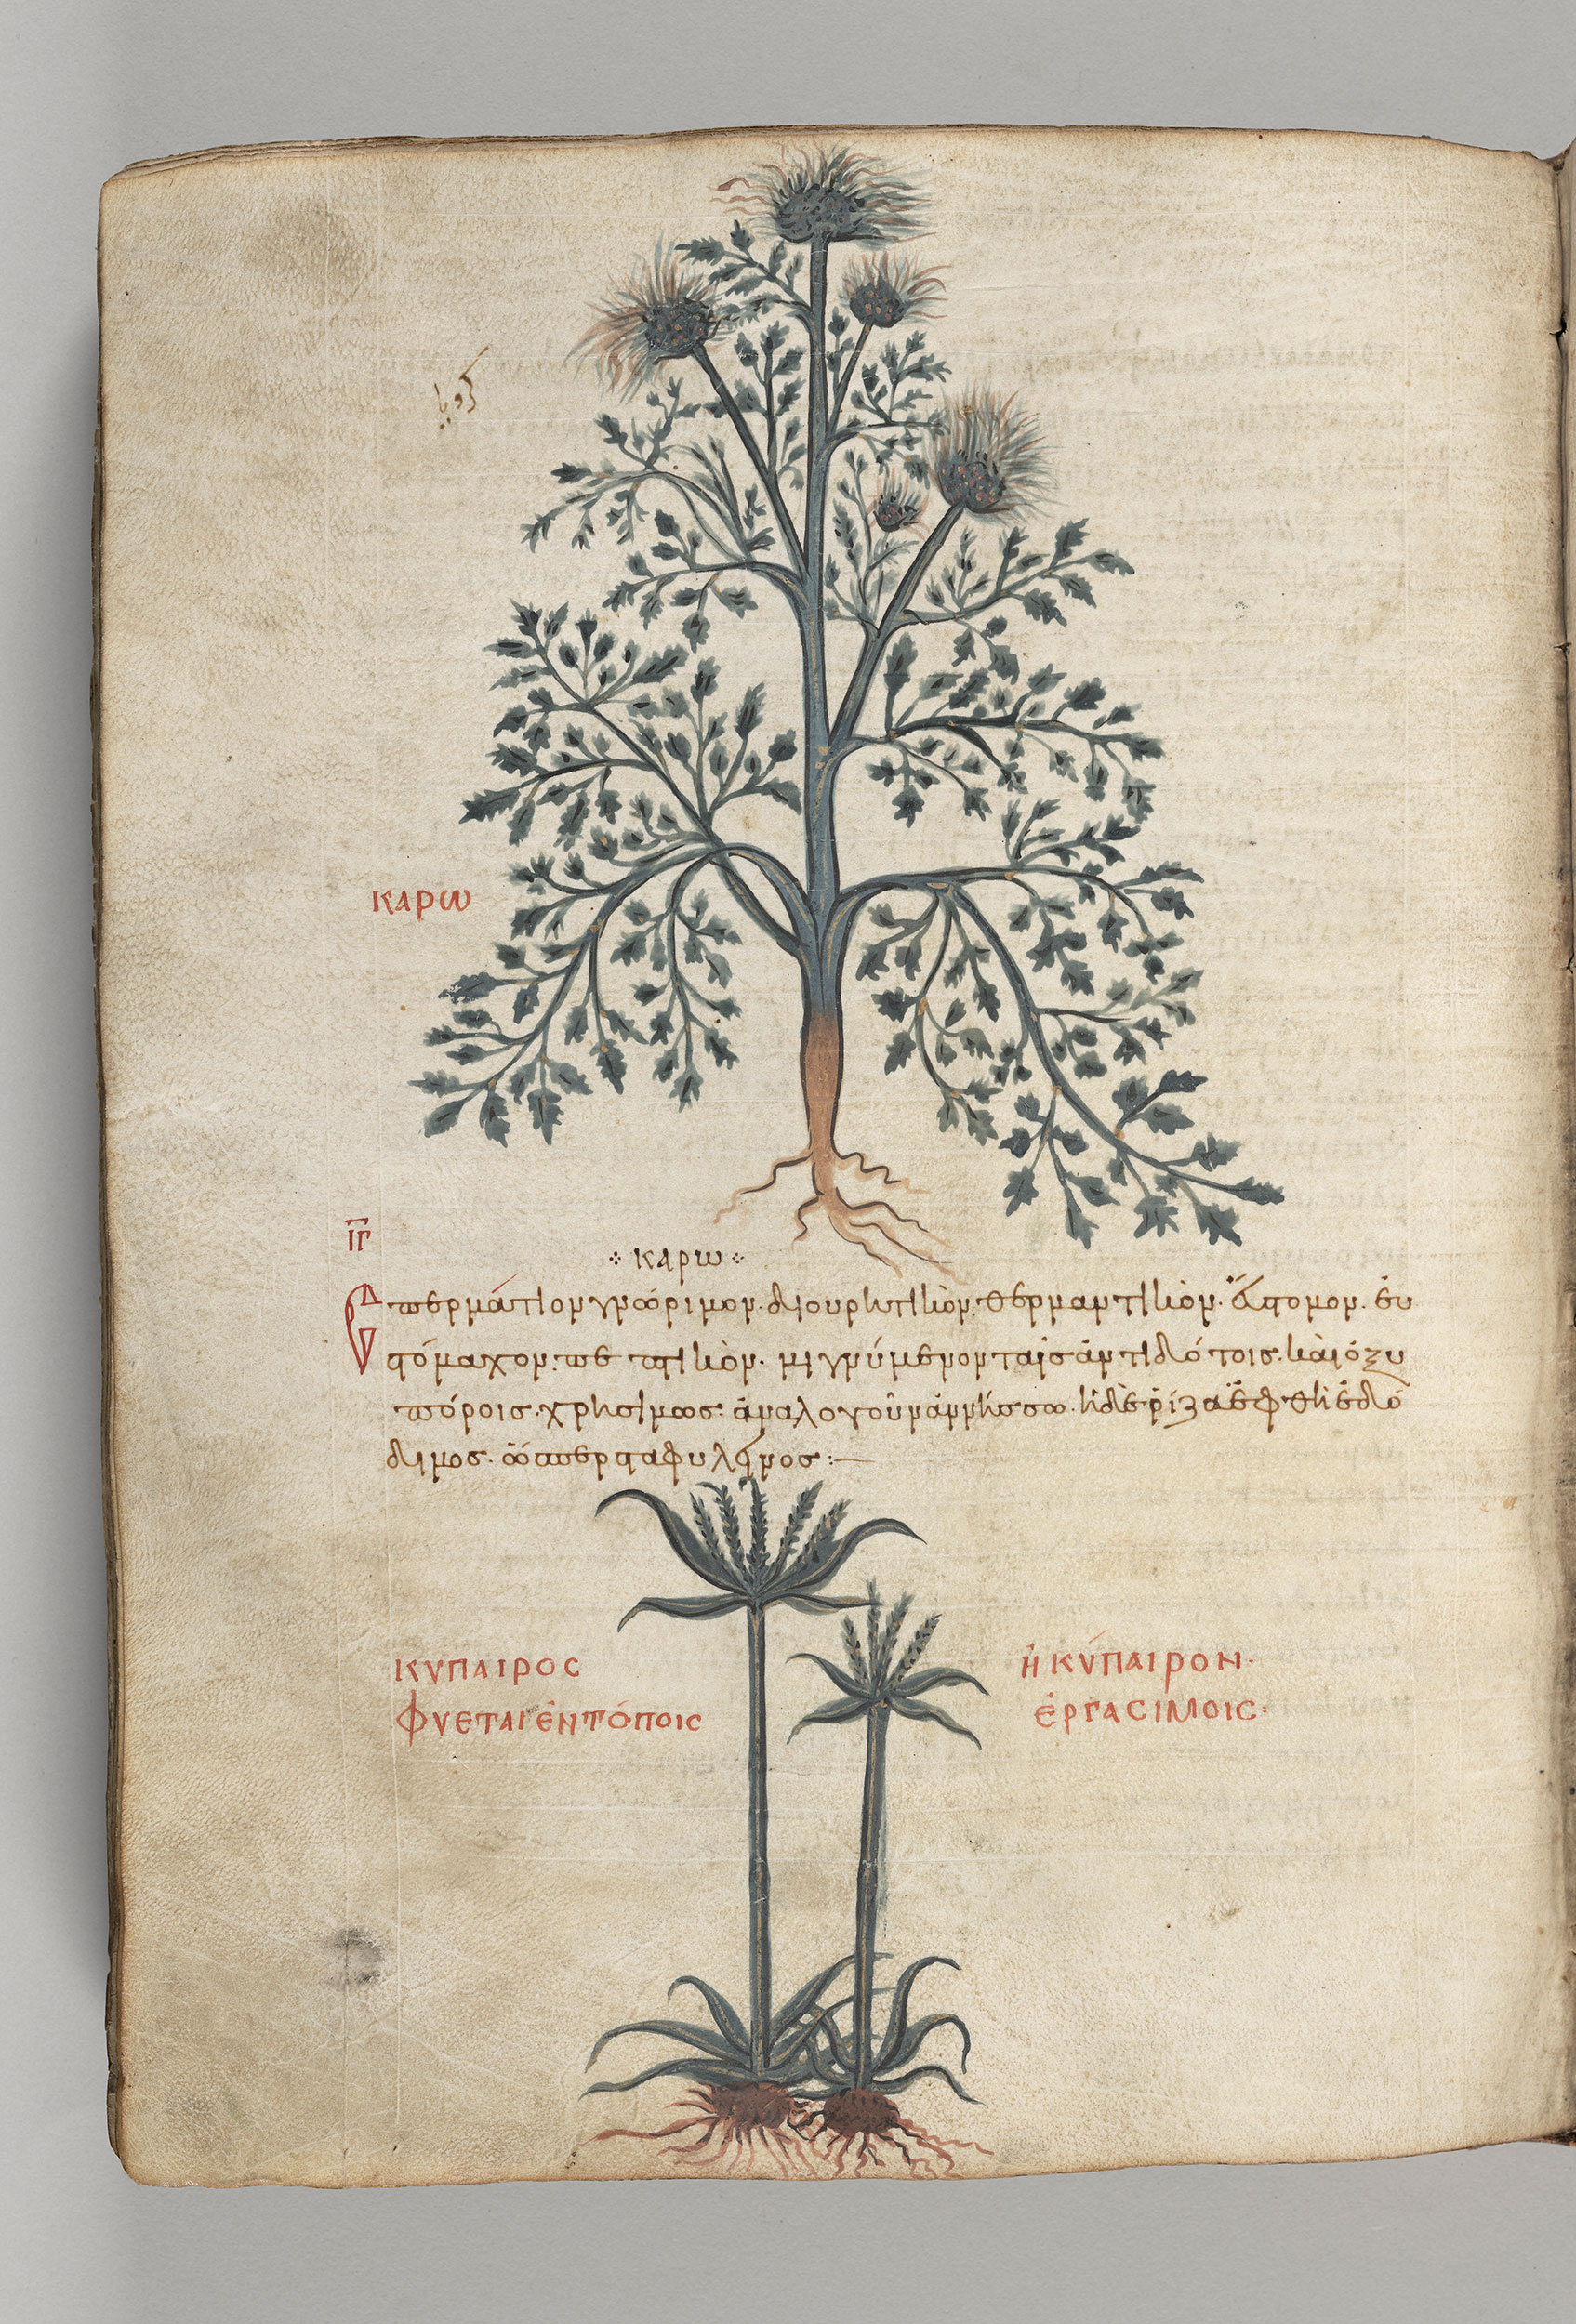 ΚΑΡΩ
ΙΓ
καρω
σπερμάτιον γνώριμον· διουρητικὸν· θερμαντικὸν· ἄστομον· ἐυ
στόμαχον· πεπτικὸν· μιγνύμενον ταῖς ἀντιδότοις· καὶ ὀξυ
πόροις· χρησίμως· ἀναλογοῦν ἀννήσσω· ἡ δὲ ῥίζα ἑφθὴ ἐδώ
διμος· ὥσπερ σταφυλῖνος :—
ΚΥΠΑΙΡΟϹ
ΦΥΕΤΑΙ ἘΝ ΤΌΠΟΙϹ
Ἠ ΚΎΠΑΙΡΟΝ·
ἘΡΓΑϹΙΜΟΙϹ: